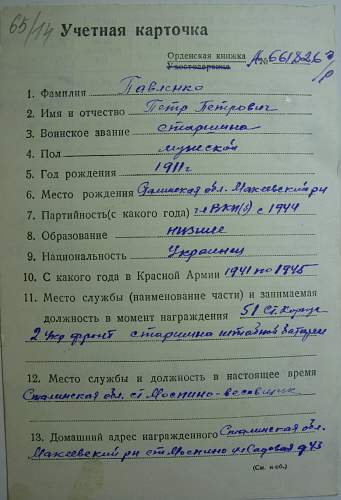 65/14
Учетная карточка
Орденская книжка
Удостоверение А № 661826
1. Фамилия Павленко
2. Имя и отчество Петр Петрович
3. Воинское звание старшина
4. Пол мужской
5. Год рождения 1911 г
6. Место рождения Сталинская обл. Макеевский рн
7. Партийность (с какого года) чл ВКП(б) с 1944
8. Образование низшее
9. Национальность Украинец
10. С какого года в Красной Армии 1941 по 1945
11. Место службы (наименование части) и занимаемая
должность в момент награждения 51 Ст. Корпус
2 Укр фронт старшина штабной батареи
12. Место службы и должность в настоящее время
Сталинская обл. ст Моспино - весовщик
13. Домашний адрес награжденного Сталинская обл.
Макеевский рн ст. Моспино ул Садовая д 43
(См. н об.)